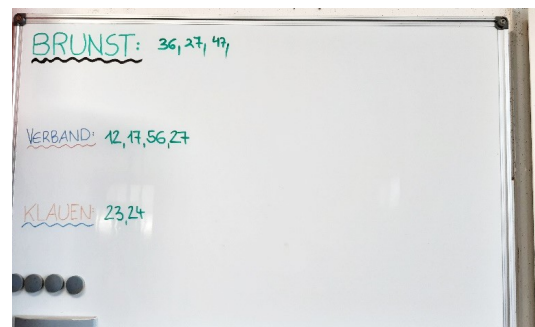 BRUNST: 36, 27, 47,
VERBAND: 12, 17, 56, 27
KLAUEN: 23, 24